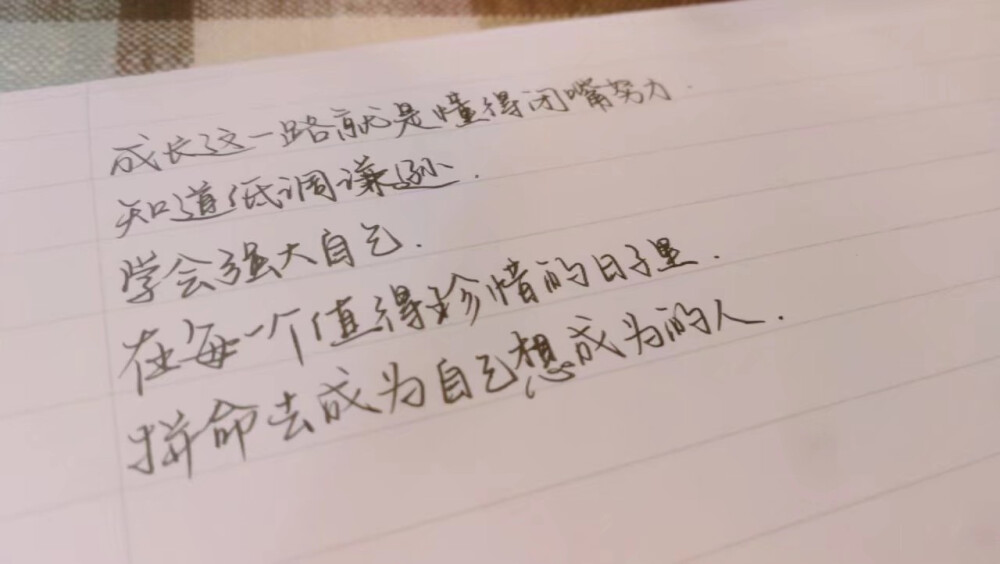 成长这一路就是懂得闭嘴努力.
知道低调谦逊.
学会强大自己.
在每一个值得珍惜的日子里.
拼命去成为自己想成为的人.